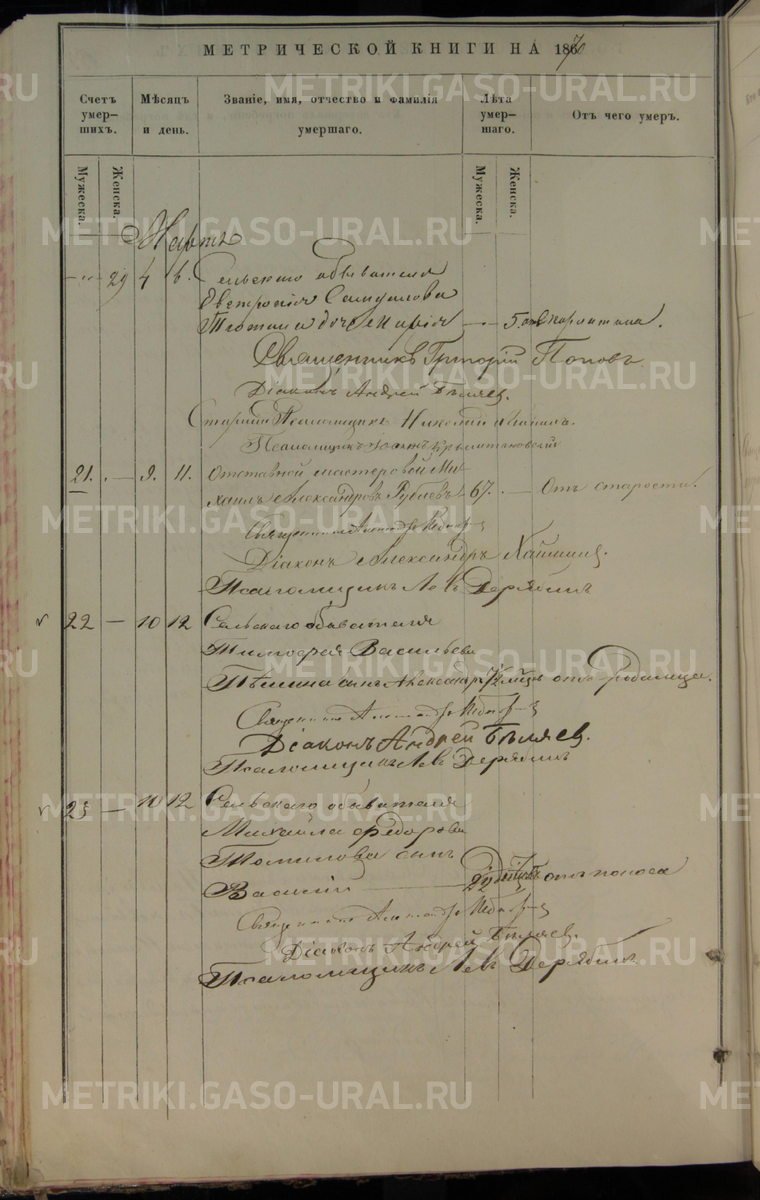 МЕТРИЧЕСКОЙ КНИГИ НА 1870
Счетъ умер-шихъ.
Мѣсяцъ и день.
Званіе, имя, отчество и фамилія умершаго.
Лѣта умер-шаго.
Отъ чего умеръ.
Мужеска.
Женска.
Мужеска.
Женска.
Мартъ
29 4 6. Сельскаго обывателя
Самуилова
дочь Марія — 5.
Священникъ Григорій Поповъ
Діаконъ Андрей Бѣляев.
Старшій Псаломщикъ Николай
Псаломщикъ
21. — 9. 11. Отставной мастеровой Ми-
хаилъ Александровъ Рублевъ 67. — Отъ старости.
Священникъ Александръ
Діаконъ Александръ
Псаломщикъ Левъ Дерябинъ
22 — 10 12 Сельскаго обывателя
Тимофея Васильева
сынъ Александръ отъ родимца.
Священникъ Александръ
Діаконъ Андрей Бѣляев.
Псаломщикъ Левъ Дерябинъ
23 — 10 12 Сельскаго обывателя
Михайла Федорова
Томилова сынъ
Василій — отъ поноса
Священникъ Александръ
Діаконъ Андрей Бѣляев.
Псаломщикъ Левъ Дерябинъ
METRIKI.GASO-URAL.RU